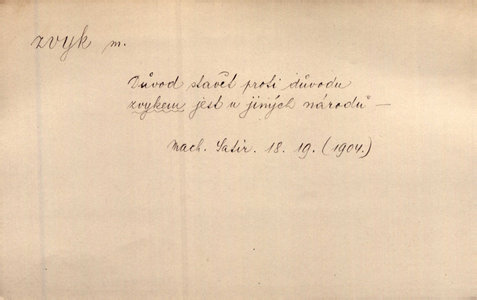 zvyk m.
Důvod stavět proti důvodu
zvykem jest u jiných národů —
Mach. Satir. 18. 19. (1904.)